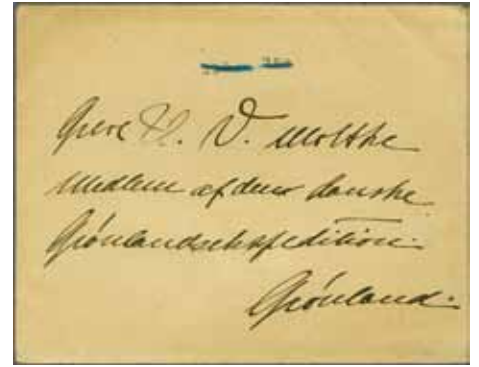 Greve H. V. Moltke
Medlem af den danske
Grönlandsekspedition.
Grönland.